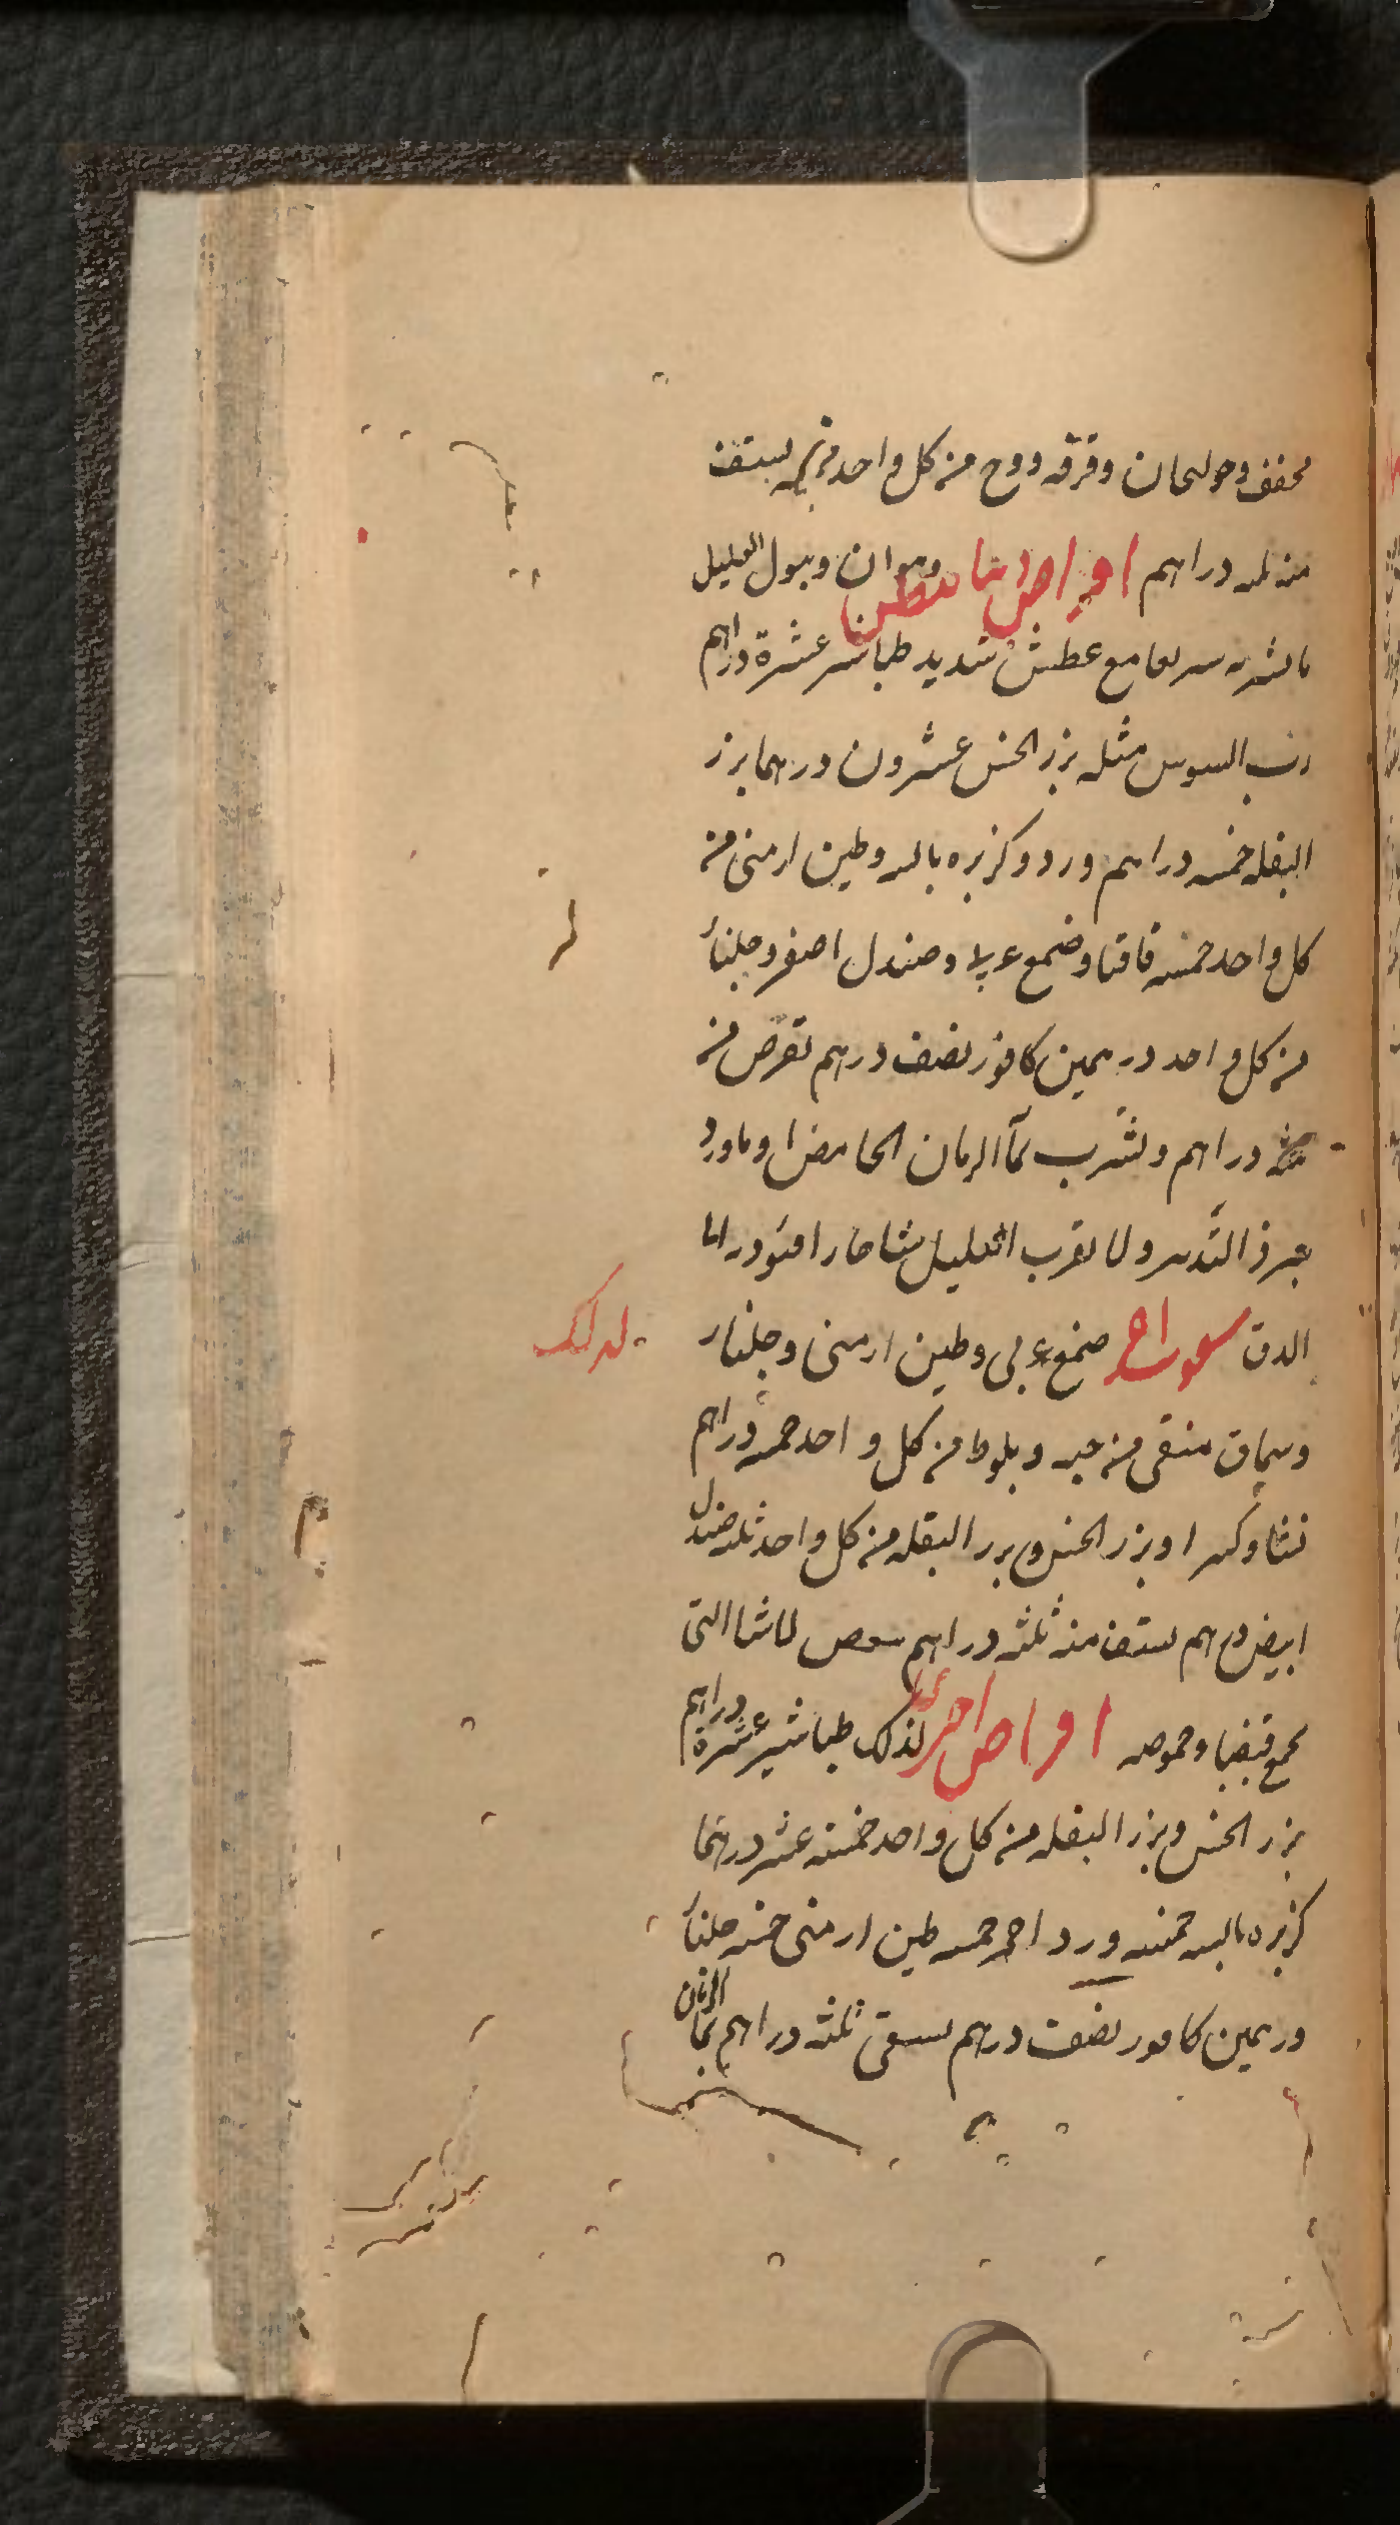 مجفف وخولنجان وقرفه ووج من كل واحد جزء يستف
منه ثلثه دراهم اقراص ديابيطس وهو ان يبول العليل
ما يشربه سريعا مع عطش شديد طباشير عشرة دراهم
رب السوس مثله بزر الخس عشرون درهما بزر
البقله خمسه دراهم ورد وكزبره يابسه وطين ارمنى من
كل واحد خمسه قاقيا وصمغ عربى وصندل اصفر وجلنار
من كل واحد درهمين كافور نصف درهم تقرص من
دراهم وتشرب بمآ الرمان الحامض او ماورد
التدبير ولا يقرب العليل شيا حارا
الدق سفوف اخر صمغ عربى وطين ارمنى وجلنار
لذلك
وسماق منقى من حبه وبلوط من كل واحد خمسه دراهم
نشا وكثيرا وبزر الخس وبزر البقله من كل واحد ثلثه صندل
ابيض درهم يستف منه ثلثه دراهم ببعض الاشيا التى
تجمع قبضا وحموضه اقراص اخر لذلك طباشير عشرة دراهم
بزر الخس وبزر البقله من كل واحد خمسة عشر درهما
كزبره يابسه خمسه ورد احمر خمسه طين ارمنى خمسه جلنار
درهمين كافور نصف درهم يسقى ثلثه دراهم بمآ الرمان